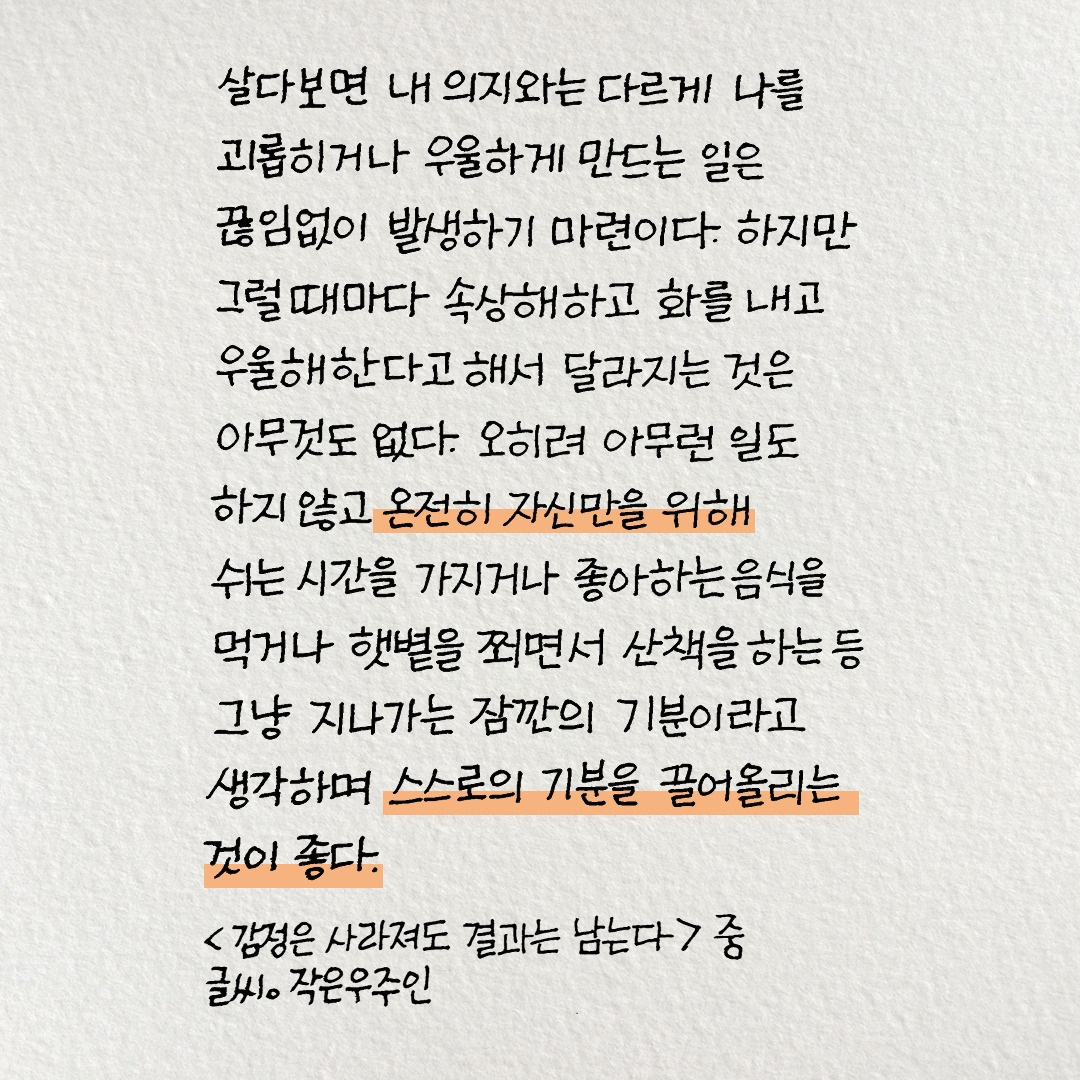 살다보면 내 의지와는 다르게 나를
괴롭히거나 우울하게 만드는 일은
끊임없이 발생하기 마련이다. 하지만
그럴때마다 속상해하고 화를 내고
우울해한다고 해서 달라지는 것은
아무것도 없다. 오히려 아무런 일도
하지 않고 온전히 자신만을 위해
쉬는 시간을 가지거나 좋아하는 음식을
먹거나 햇볕을 쬐면서 산책을 하는 등
그냥 지나가는 잠깐의 기분이라고
생각하며 스스로의 기분을 끌어올리는
것이 좋다.
<감정은 사라져도 결과는 남는다> 중
글씨。작은우주인